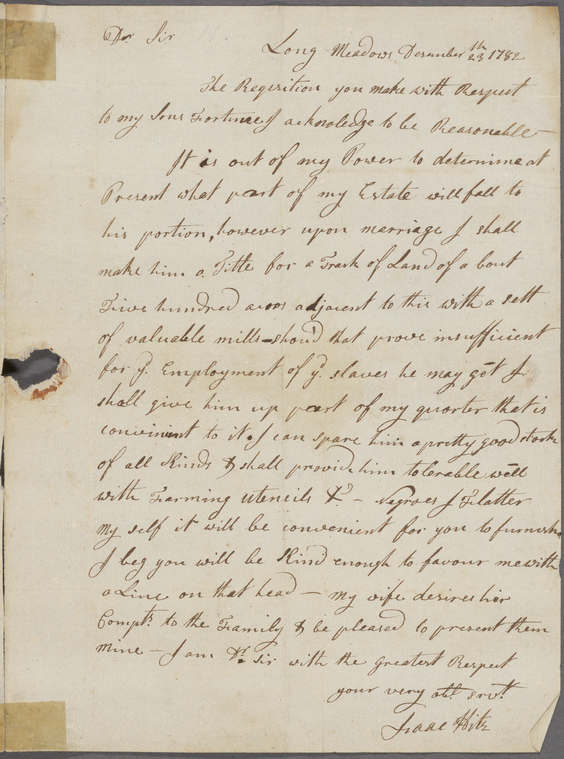 Dr. Sir
Long Meadows December 23th 1782
The Reqisition you make with Respect
to my Sons Fortune I acknowledge to be Reasonable —
It is out of my Power to determine at
Present what part of my Estate will fall to
his portion, however upon marriage I shall
make him a Title for a Track of Land of a bout
Five hundred acres adjacent to this with a sett
of valuable mills — shou'd that prove insufficient
for ye. Employment of ye. slaves he may get I
shall give him up part of my quarter that is
convinient to it. I can spare him a pretty good stock
of all Kinds & shall provide him tolerable well
with Farming utencils &c. — Negroes I Flatter
my self it will be convenient for you to furnish.
I beg you will be Kind enough to favour me with
a Line on that head — my wife desires her
Compts. to the Family & be pleased to present them
mine — I am Dr. Sir with the greatest Respect
your very obt. Srvt.
Isaac Hite